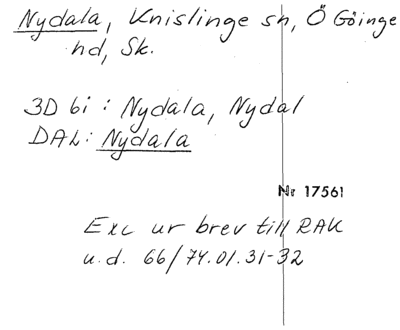 Nydala, Knislinge sn, Ö Göinge
hd, Sk.
3D bi: Nydala, Nydal
DAL: Nydala
Nr 17561
Exc ur brev till RAK
u.d. 66/74.01.31-32